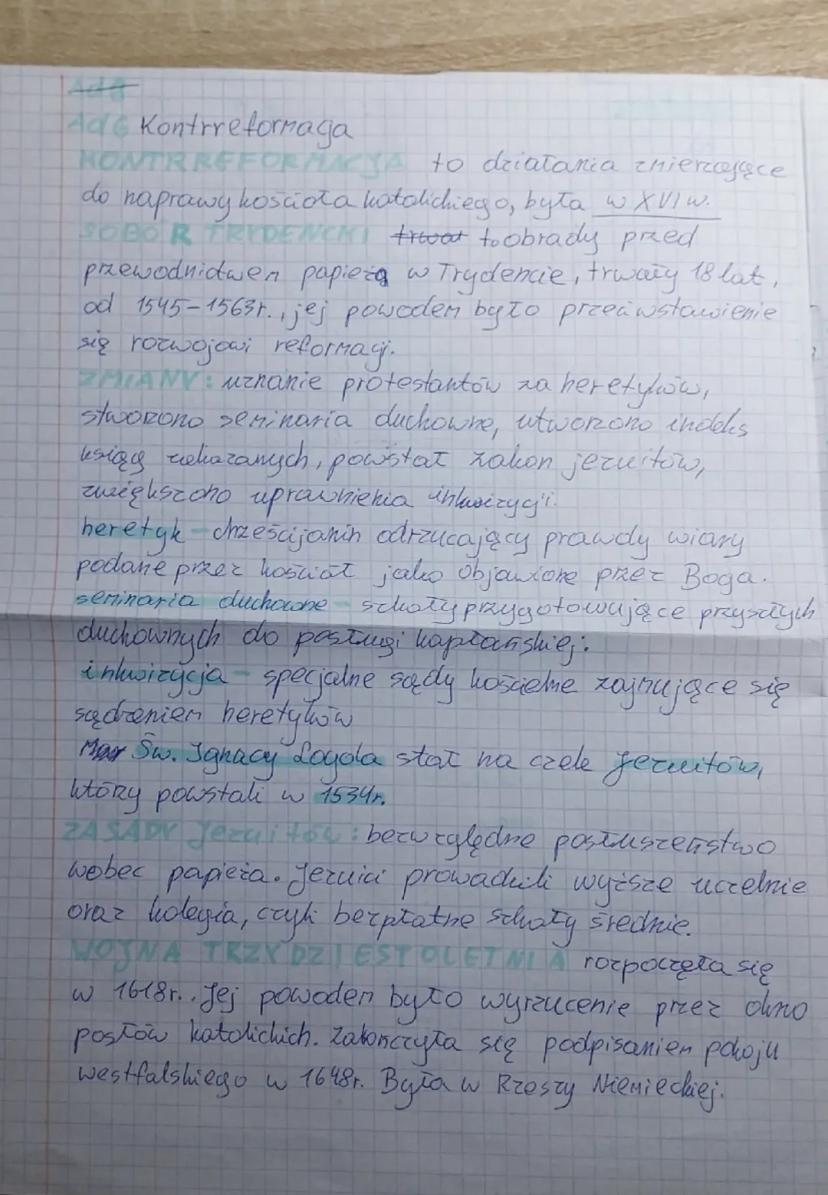 Ad 8
Ad 6 Kontrreformacja
KONTRREFORMACJA to działania zmierzające
do naprawy kościoła katolickiego, była w XVI w.
SOBÓR TRYDENCKI trwał to obrady przed
przewodnictwem papieża w Trydencie, trwały 18 lat,
od 1545-1563r., jej powodem było przeciwstawienie
się rozwojowi reformacji.
ZMIANY: uznanie protestantów za heretyków,
stworzono seminaria duchowne, utworzono indeks
ksiąg zakazanych, powstał zakon jezuitów,
zwiększono uprawnienia inkwizycji.
heretyk - chrześcijanin odrzucający prawdy wiary
podane przez kościół jako objawione przez Boga.
seminaria duchowne - szkoły przygotowujące przyszłych
duchownych do posługi kapłańskiej.
inkwizycja - specjalne sądy kościelne zajmujące się
sądzeniem heretyków
Św. Ignacy Loyola stał na czele Jezuitów,
którzy powstali w 1534r.
ZASADY Jezuitów: bezwzględne posłuszeństwo
wobec papieża. Jezuici prowadzili wyższe uczelnie
oraz kolegia, czyli bezpłatne szkoły średnie.
WOJNA TRZYDZIESTOLETNIA rozpoczęła się
w 1618r.. Jej powodem było wyrzucenie przez okno
posłów katolickich. Zakończyła się podpisaniem pokoju
westfalskiego w 1648r. Była w Rzeszy Niemieckiej.